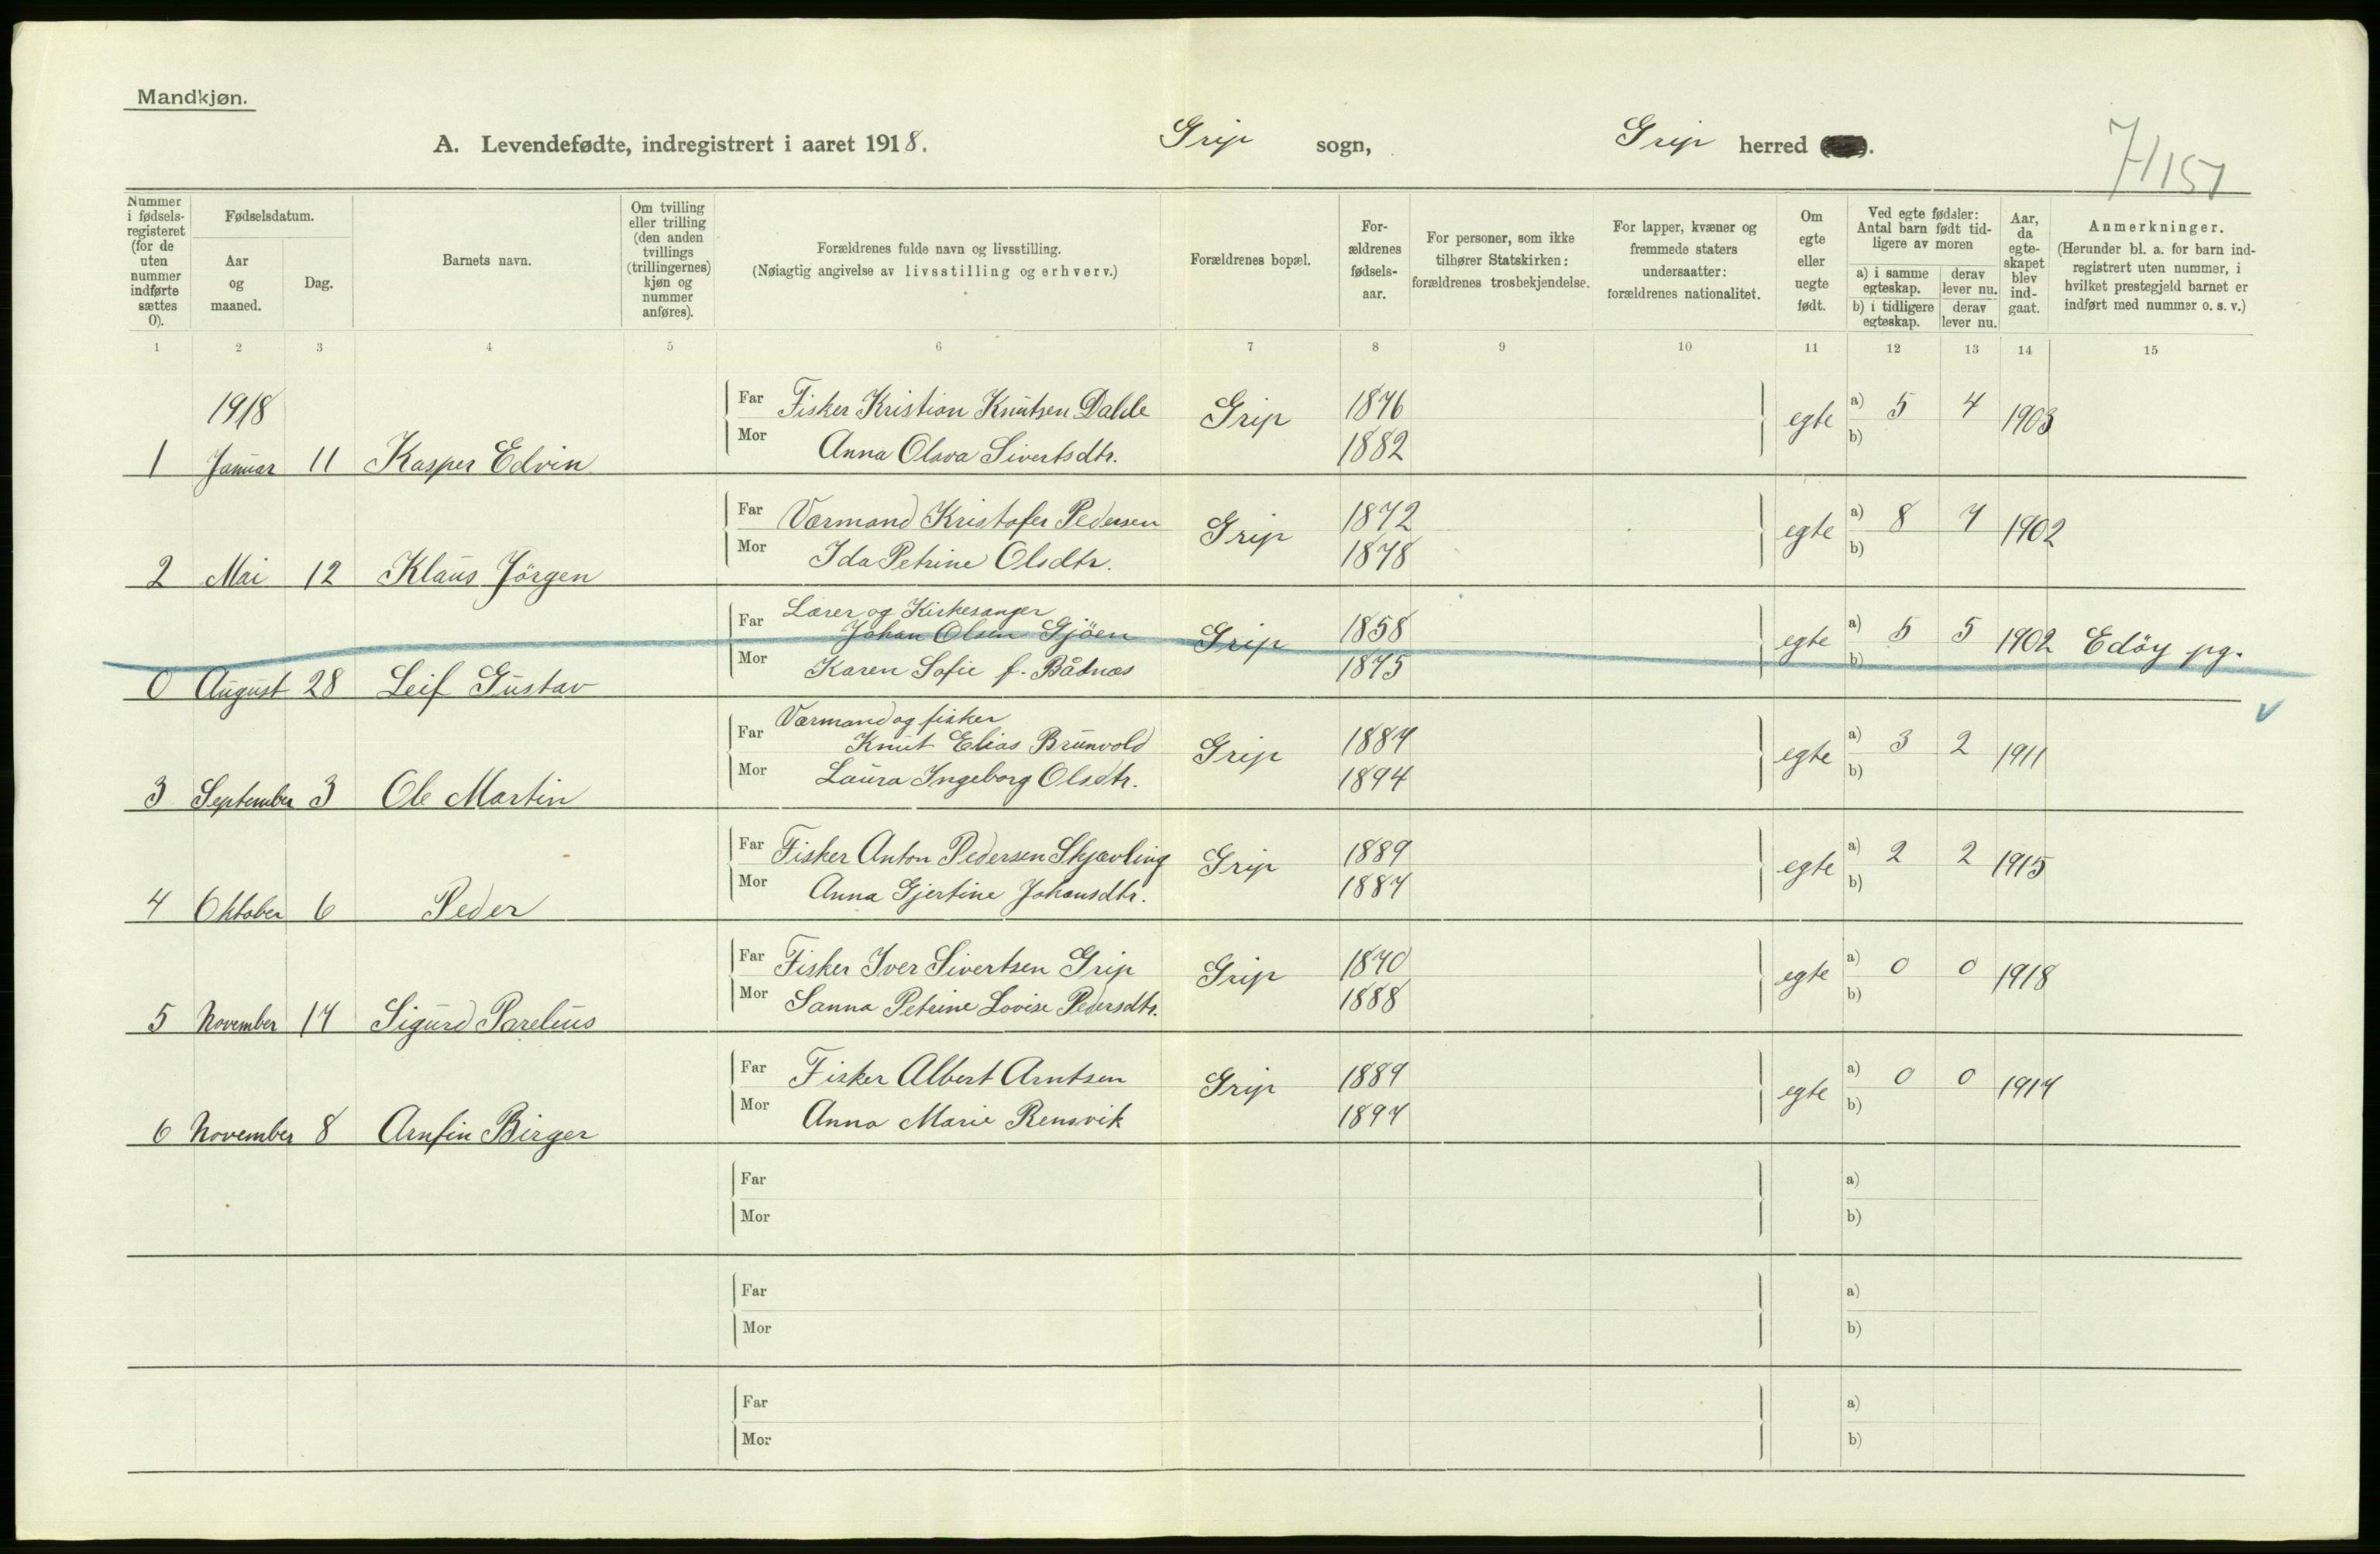 Mandkjøn.
A. Levendefødte, indregistrert i aaret 1918. Grip sogn, Grip herred
Nummer i fødselsregisteret (for de uten nummer indførte sættes 0).
Fødselsdatum.
Aar og maaned.
Dag.
Barnets navn.
Om tvilling eller trilling (den anden tvillings (trillingernes) kjøn og nummer anføres).
Forældrenes fulde navn og livsstilling.
(Nøiagtig angivelse av livsstilling og erhverv.)
Forældrenes bopæl.
Forældrenes fødselsaar.
For personer, som ikke tilhører Statskirken: forældrenes trosbekjendelse.
For lapper, kvæner og fremmede staters undersaatter: forældrenes nationalitet.
Om egte eller uegte født.
Ved egte fødsler: Antal barn født tidligere av moren
a) i samme egteskap. derav lever nu.
b) i tidligere egteskap. derav lever nu.
Aar, da egteskapet blev indgaat.
Anmerkninger.
(Herunder bl. a. for barn indregistrert uten nummer, i hvilket prestegjeld barnet er indført med nummer o. s. v.)
1 2 3 4 5 6 7 8 9 10 11 12 13 14 15
1918
Far Fisker Kristian Knutsen Dahle Grip 1876 egte a) 5 4 1903
Mor Anna Olava Sivertsdtr. 1882 b)
1 Januar 11 Kasper Edvin
Far Værmand Kristofer Pedersen Grip 1872 egte a) 8 7 1902
Mor Ida Petrine Olsdtr. 1878 b)
2 Mai 12 Klaus Jörgen
Lærer og Kirkesanger
Far Johan Olsen Gjöen Grip 1858 egte a) 5 5 1902 Edöy pg.
Mor Karen Sofie f. Bådnæs 1875 b)
0 August 28 Leif Gustav
Værmand og fisker
Far Knut Elias Brunvold Grip 1887 egte a) 3 2 1911
Mor Laura Ingeborg Olsdtr. 1894 b)
3 September 3 Ole Martin
Far Fisker Anton Pedersen Skjævling Grip 1889 egte a) 2 2 1915
Mor Anna Gjertine Johansdtr. 1887 b)
4 Oktober 6 Peder
Far Fisker Iver Sivertsen Grip Grip 1870 egte a) 0 0 1918
Mor Sanna Petrine Lovise Pedersdtr. 1888 b)
5 November 17 Sigurd Parelius
Far Fisker Albert Arntsen Grip 1889 egte a) 0 0 1917
Mor Anna Marie Rensvik 1897 b)
6 November 8 Arnfin Birger
Far a)
Mor b)
Far a)
Mor b)
Far a)
Mor b)